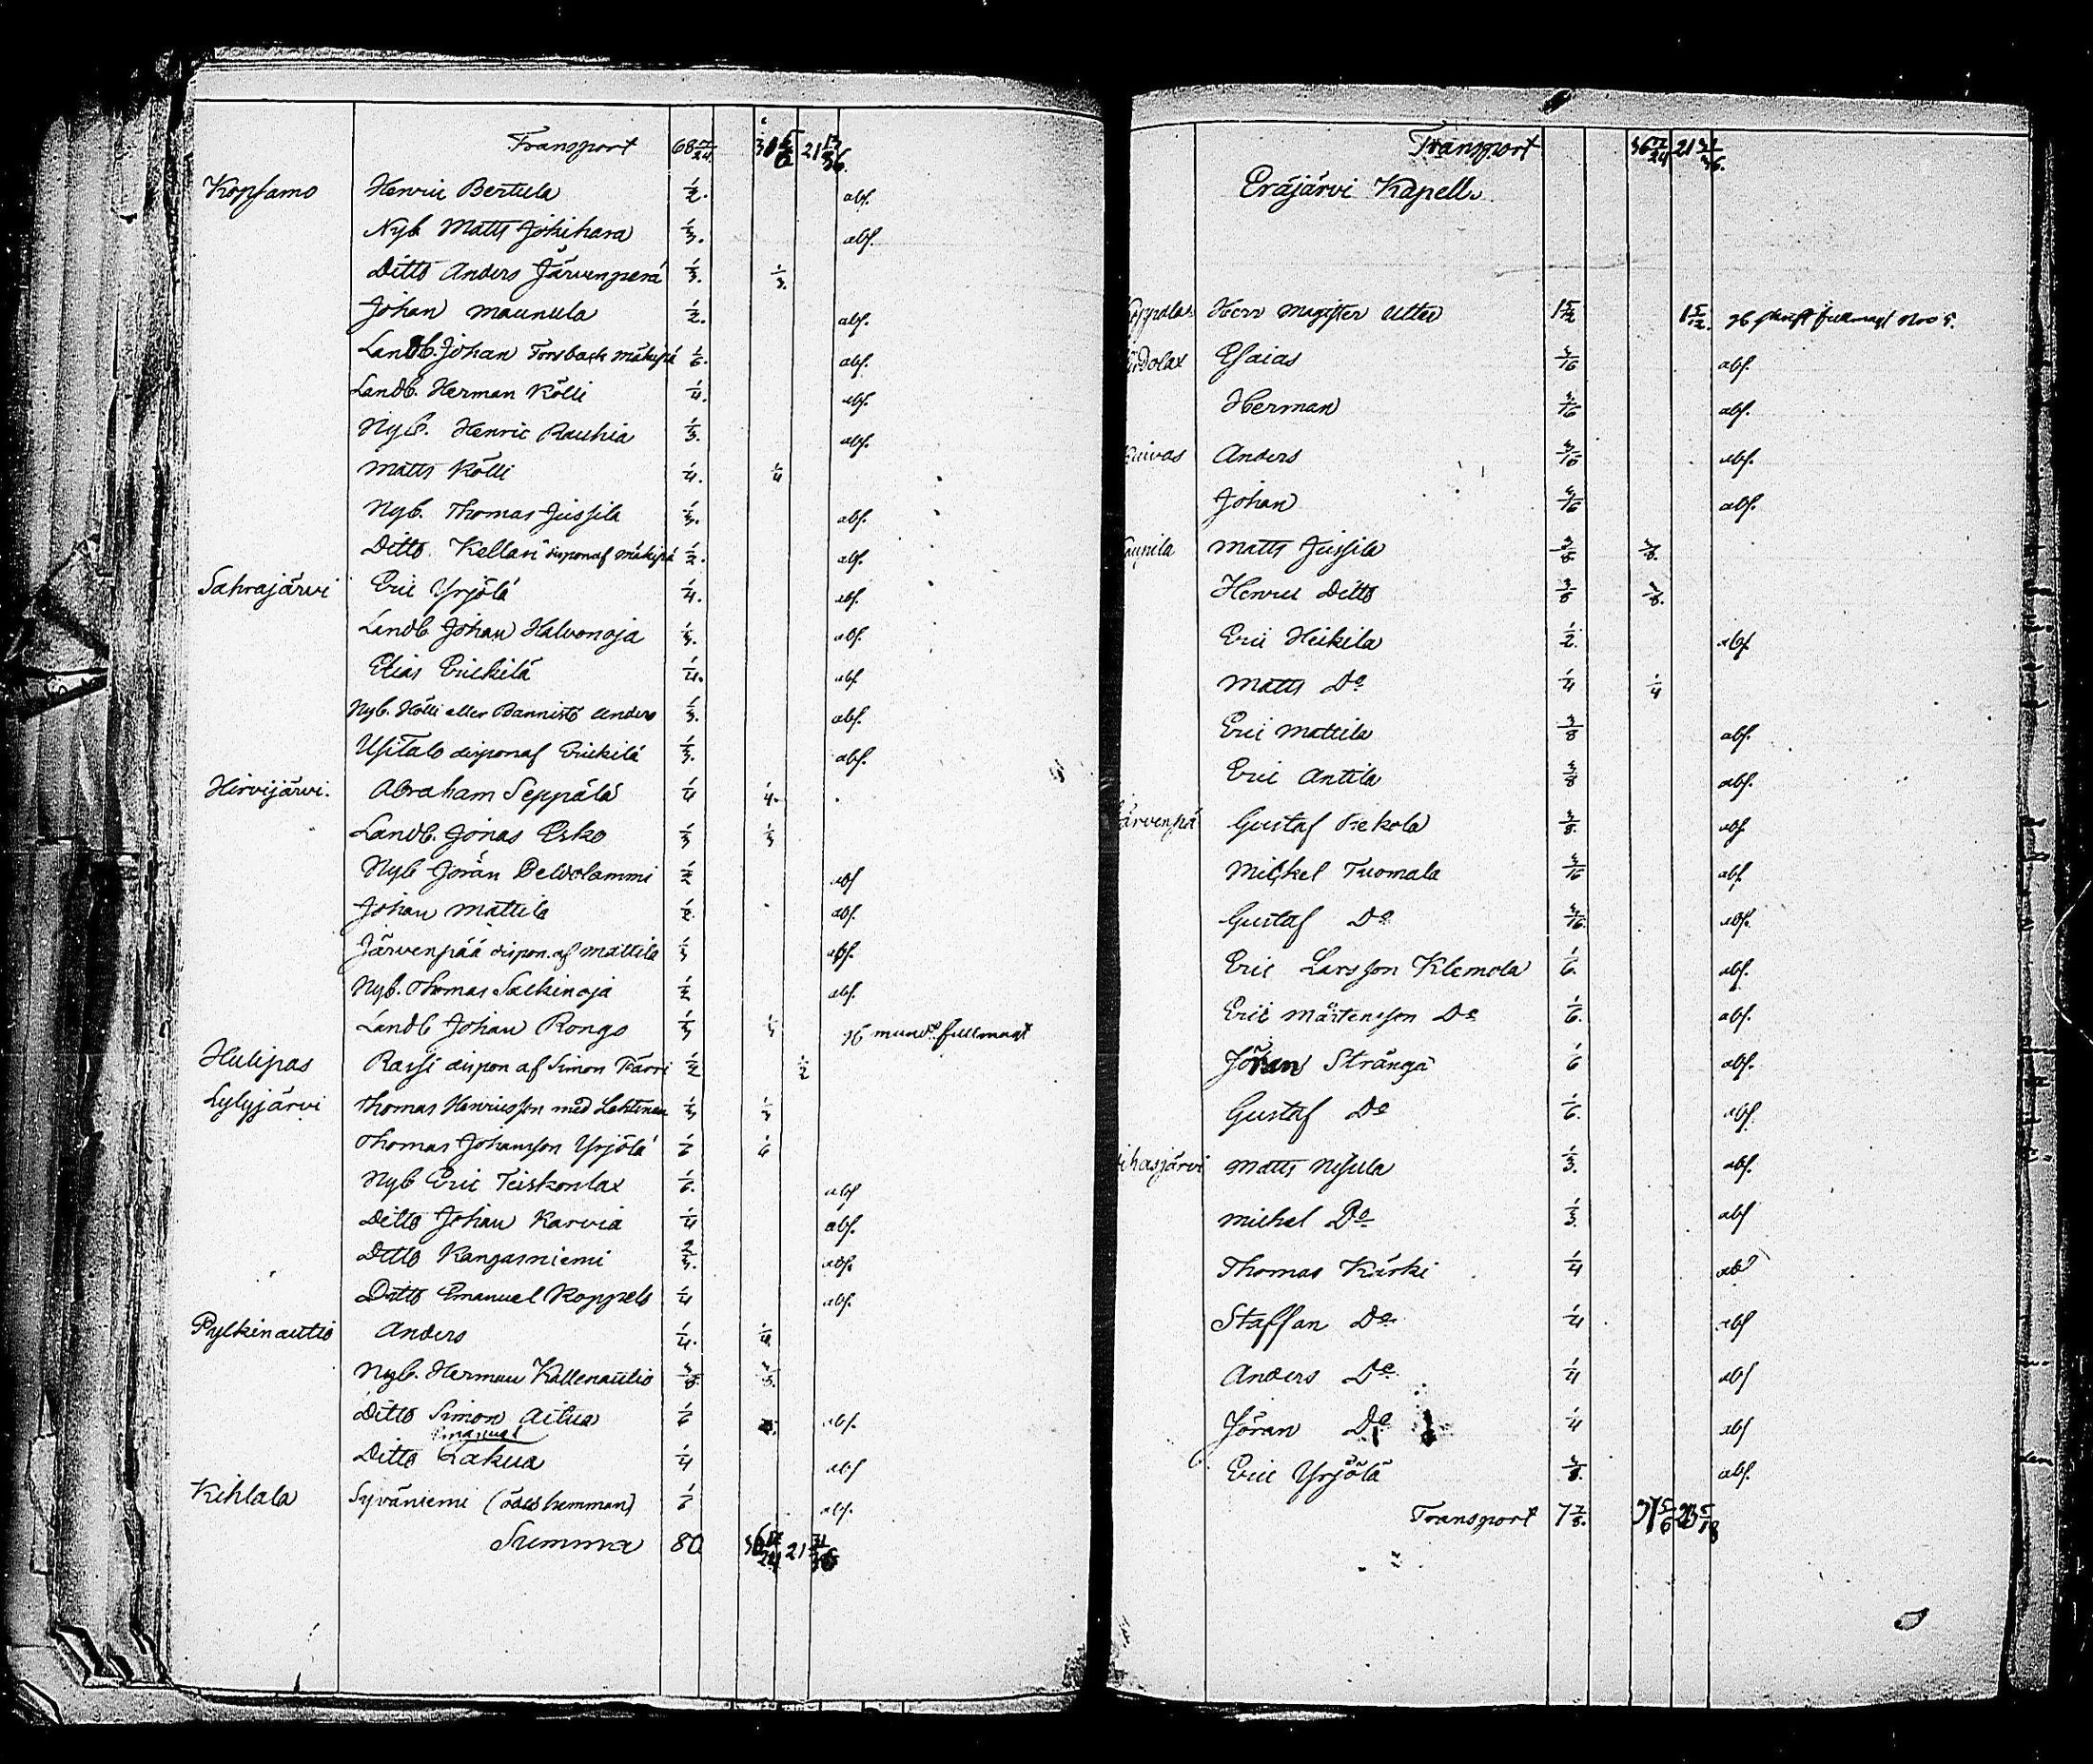 Transport 68 17/24 21
Kopsamo Henric Bertula 1/2. abs.
Nyb. Matts Jokihara 1/3. abs.
Ditto Anders Järvenperä 1/3. 1/3.
Johan Maunula 1/2. abs.
Landb. Johan Forsback Mäkipä 1/6. abs.
Landb. Herman Kölli 1/4. abs.
Nyb. Henric Rauhia 1/3. abs.
Matts Kölli 1/4. 1/4
Nyb. Thomas Jussila 1/3. abs.
Ditto Kellari disponaf Mäkipä 1/2. abs.
Sahrajärvi Eric Yrjölä 1/4. abs.
Landb. Johan Halvonoja 1/3. abs.
Elias Erickilä 1/4. abs.
Nyb. Hölli eller Bannisto Anders 1/3. abs.
Usitalo disponaf Erickilä 1/3. abs.
Hirvijärvi. Abraham Seppälä 1/4 1/4.
Landb. Jonas Esko 1/3 1/3
Nyb Jöran Peldolammi 1/2 abs
Johan Mattila 1/2. abs.
Järvenpää dispon. af Mattila 1/3 abs.
Nyb. Thomas Salkinoja 1/2 abs.
Landb Johan Rongo 1/3 1/3 muno. fullmagt
Hulipas Rassi dispon af Simon Färri 1/2 1/2
Lylyjärvi Thomas Henricsson med Lehtinen 1/3 1/3
Thomas Johansson Yrjölä 1/6 1/6
Nyb Eric Teiskonlax 1/6. abs
Ditto Johan Karvia 1/4 abs.
Ditto Kangasniemi 2/3. abs.
Ditto Emanuel Koppelo 1/4 abs.
Pylkinautio Anders 1/4. 1/4
Nyb. Herman Kallenautio 3/8. 3/8.
Ditto Simon Aitua 1/6 abs.
Emanuel
Ditto Lakua 1/4 abs
Kihlala Syväniemi (ödeshemman) 1/6 abs.
Summa 80 36 17/24 21 31/36
Transport 36 17/24 21 31/36.
Eräjärvi Kapell.
Herr Magister Utter 1 5/12 1 5/12. skrift fullmagt No 5.
Esaias 3/16 abs.
Herman 3/16 abs.
Anders 3/16 abs.
Johan 3/16 abs.
Matts Jussila 3/8 3/8.
Henric Ditto 3/8 3/8.
Eric Heikila 1/2. abs
Matts Do 1/4 1/4
Eric Mattila 3/8 abs.
Eric Antila 3/8 abs.
ärvenpä Gustaf Piekola 3/8. abs
Mickel Tuomala 3/16 abs.
Gustaf Do 3/16. abs.
Eric Larsson Klemola 1/6. abs.
Eric Mårtensson Do 1/6. abs.
Jöran Stränga 1/6 abs.
Gustaf Do 1/6. abs
ihasjärvi Matts Nisula 1/3. abs.
Michel Do 1/3. abs
Thomas Kärki 1/4 abs
Staffan Do 1/4 abs
Anders Do 1/4 abs
Jöran Do 1/4 abs
Eric Yrjölä 3/8. abs.
Transport 7 7/8. 37 5/6 23 5/18